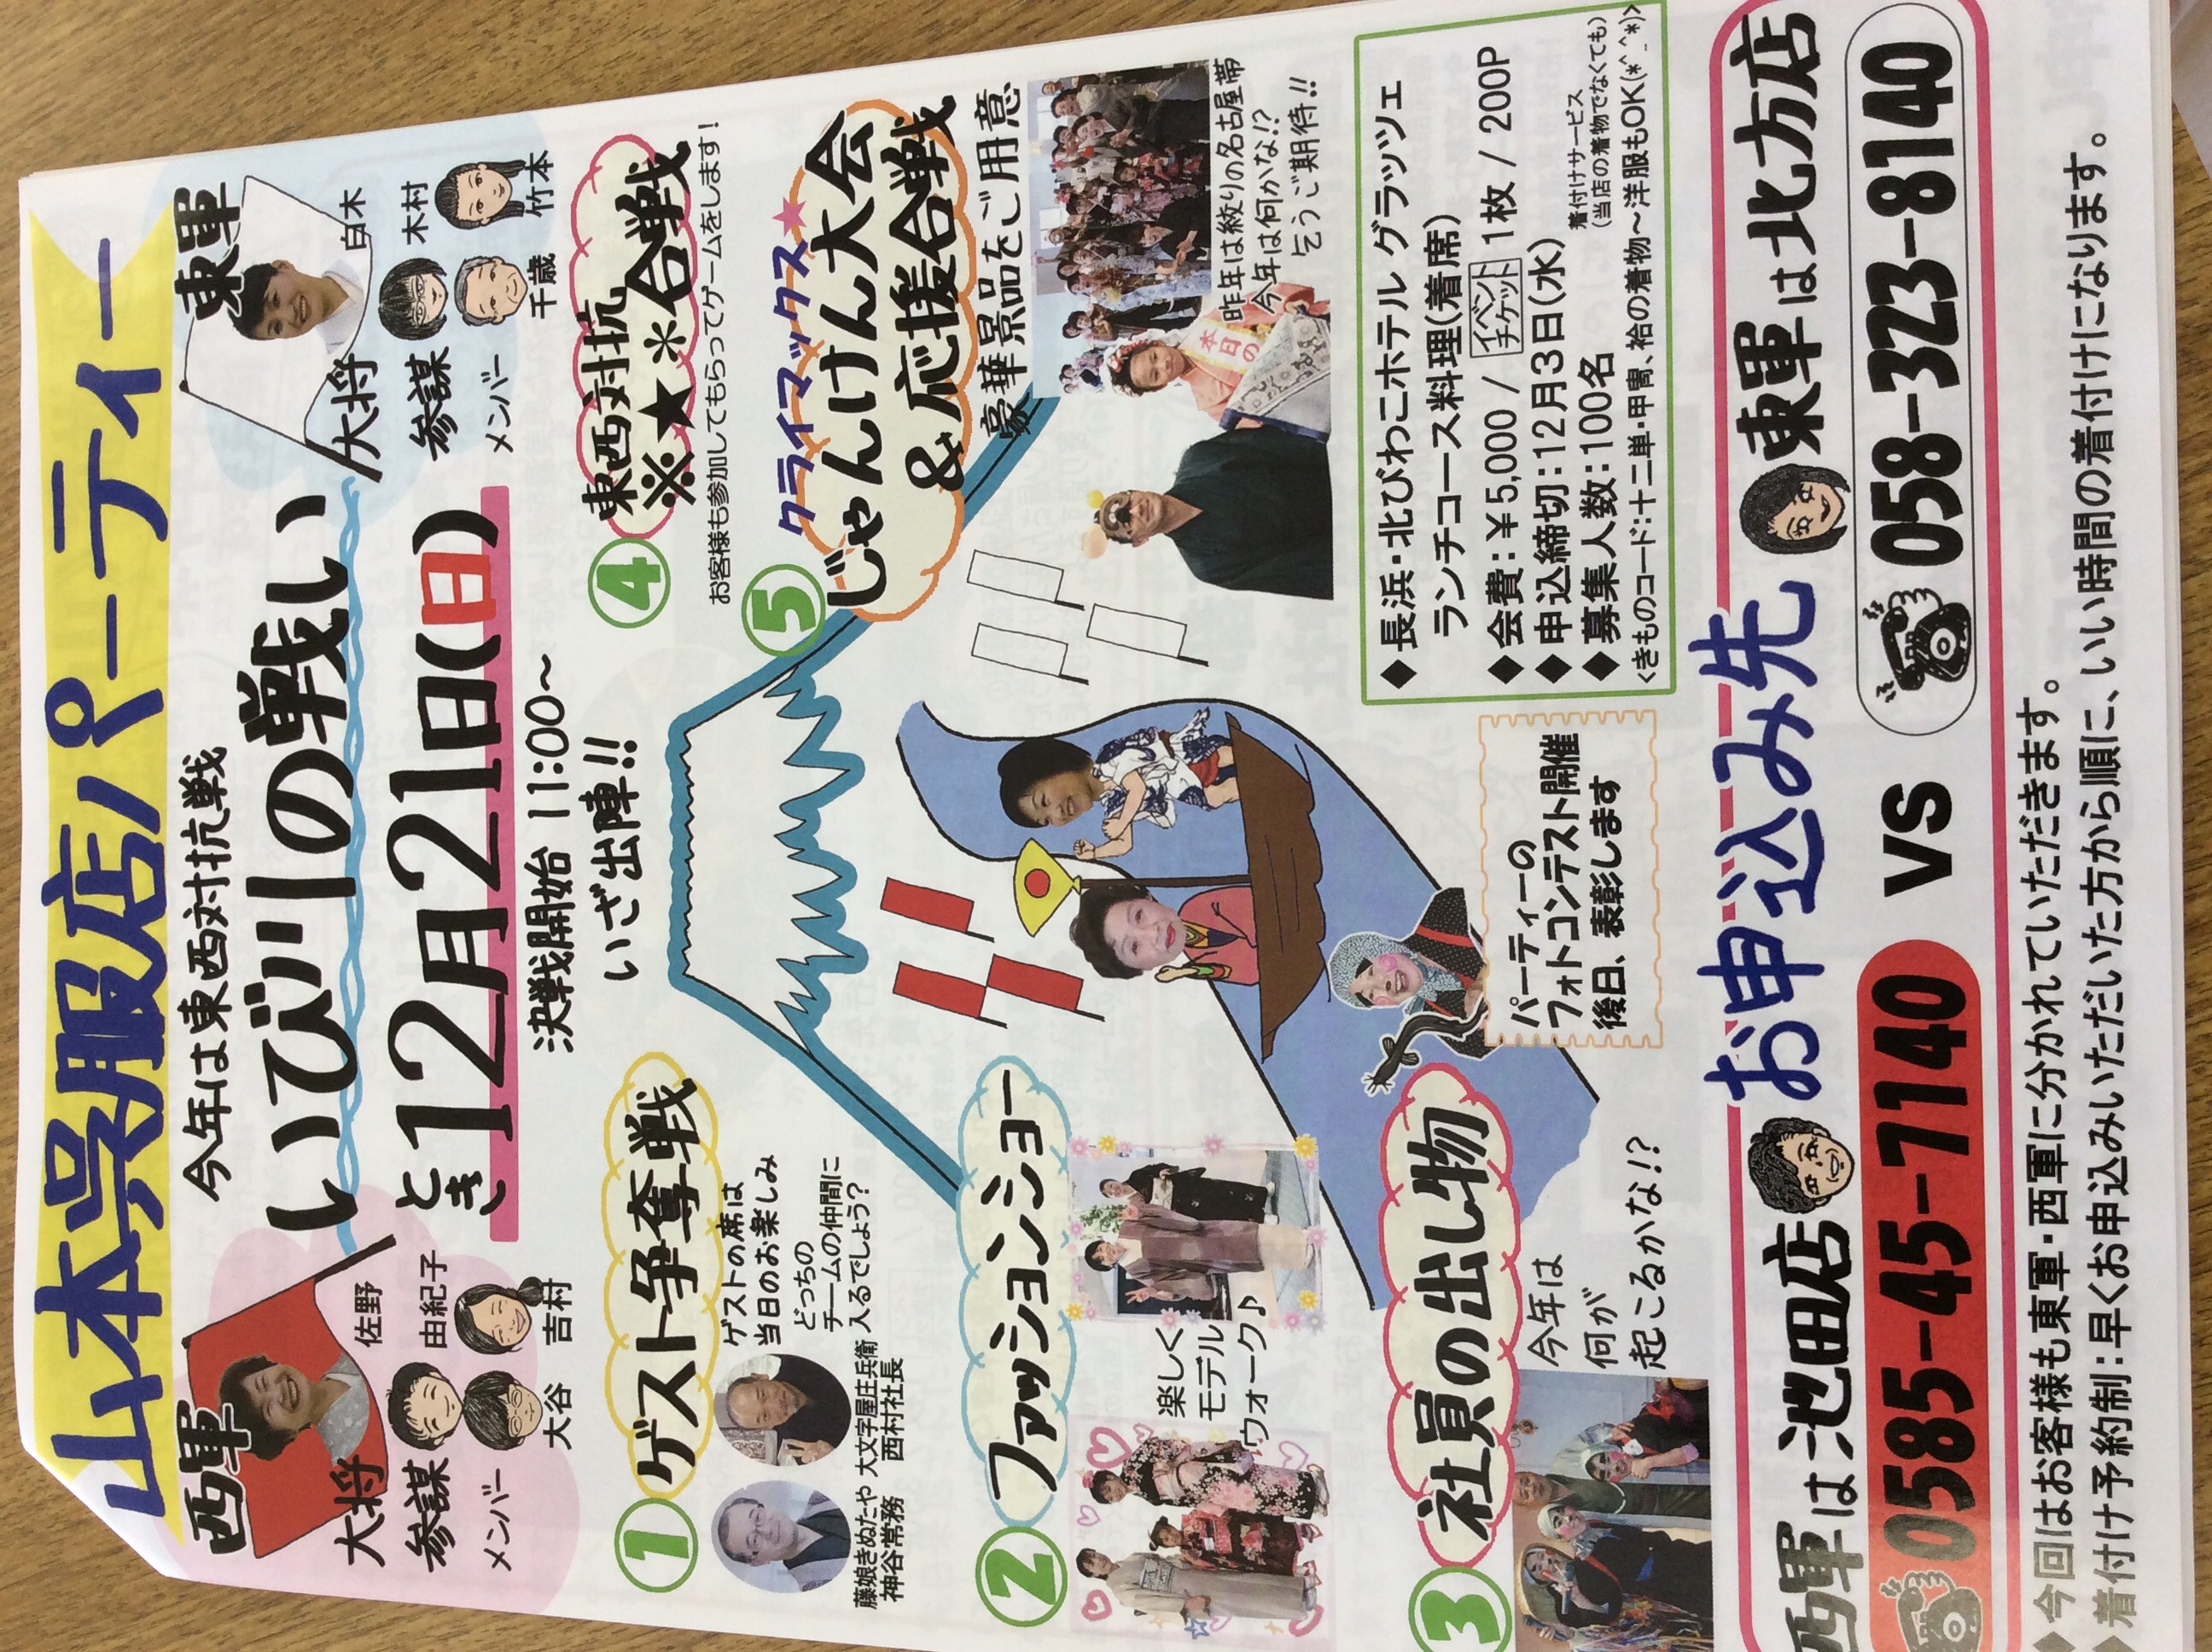 山本呉服店パーティー
今年は東西対抗戦
いび川の戦い
とき12月21日(日)
決戦開始 11:00～
いざ出陣!!
西軍
大将
佐野
参謀
由紀子
メンバー
大谷
吉村
東軍
大将
白木
参謀
木村
メンバー
千歳
竹本
① ゲスト争奪戦
ゲストの席は
当日のお楽しみ
どっちの
チームの仲間に
入るでしょう?
藤娘きぬたや
神谷常務
大文字屋庄兵衛
西村社長
② ファッションショー
楽しく
モデル
ウォーク♪
③ 社員の出し物
今年は
何が
起こるかな!?
④ 東西対抗
※★＊合戦
お客様も参加してもらってゲームをします!
⑤ クライマックス★
じゃんけん大会
&応援合戦
豪華景品をご用意
昨年は絞りの名古屋帯
今年は何かな!?
乞うご期待!!
本日の
パーティーの
フォトコンテスト開催
後日、表彰します
◆長浜・北びわこホテル グラッツェ
ランチコース料理(着席)
◆会費:￥5,000 / イベントチケット 1枚 / 200P
◆申込締切:12月3日(水)
◆募集人数:100名
着付けサービス
(当店の着物でなくても)
<きものコード:十二単・甲冑、袷の着物～洋服もOK(*^_^*)>
お申込み先
西軍は池田店
0585-45-7140
vs
東軍は北方店
058-323-8140
◆今回はお客様も東軍・西軍に分かれていただきます。
着付け予約制:早くお申込みいただいた方から順に、いい時間の着付けになります。